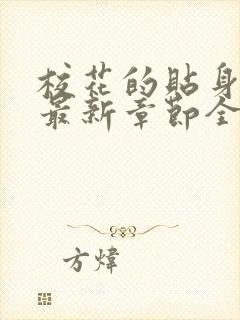 校花的貼身
最新章節全
方煒